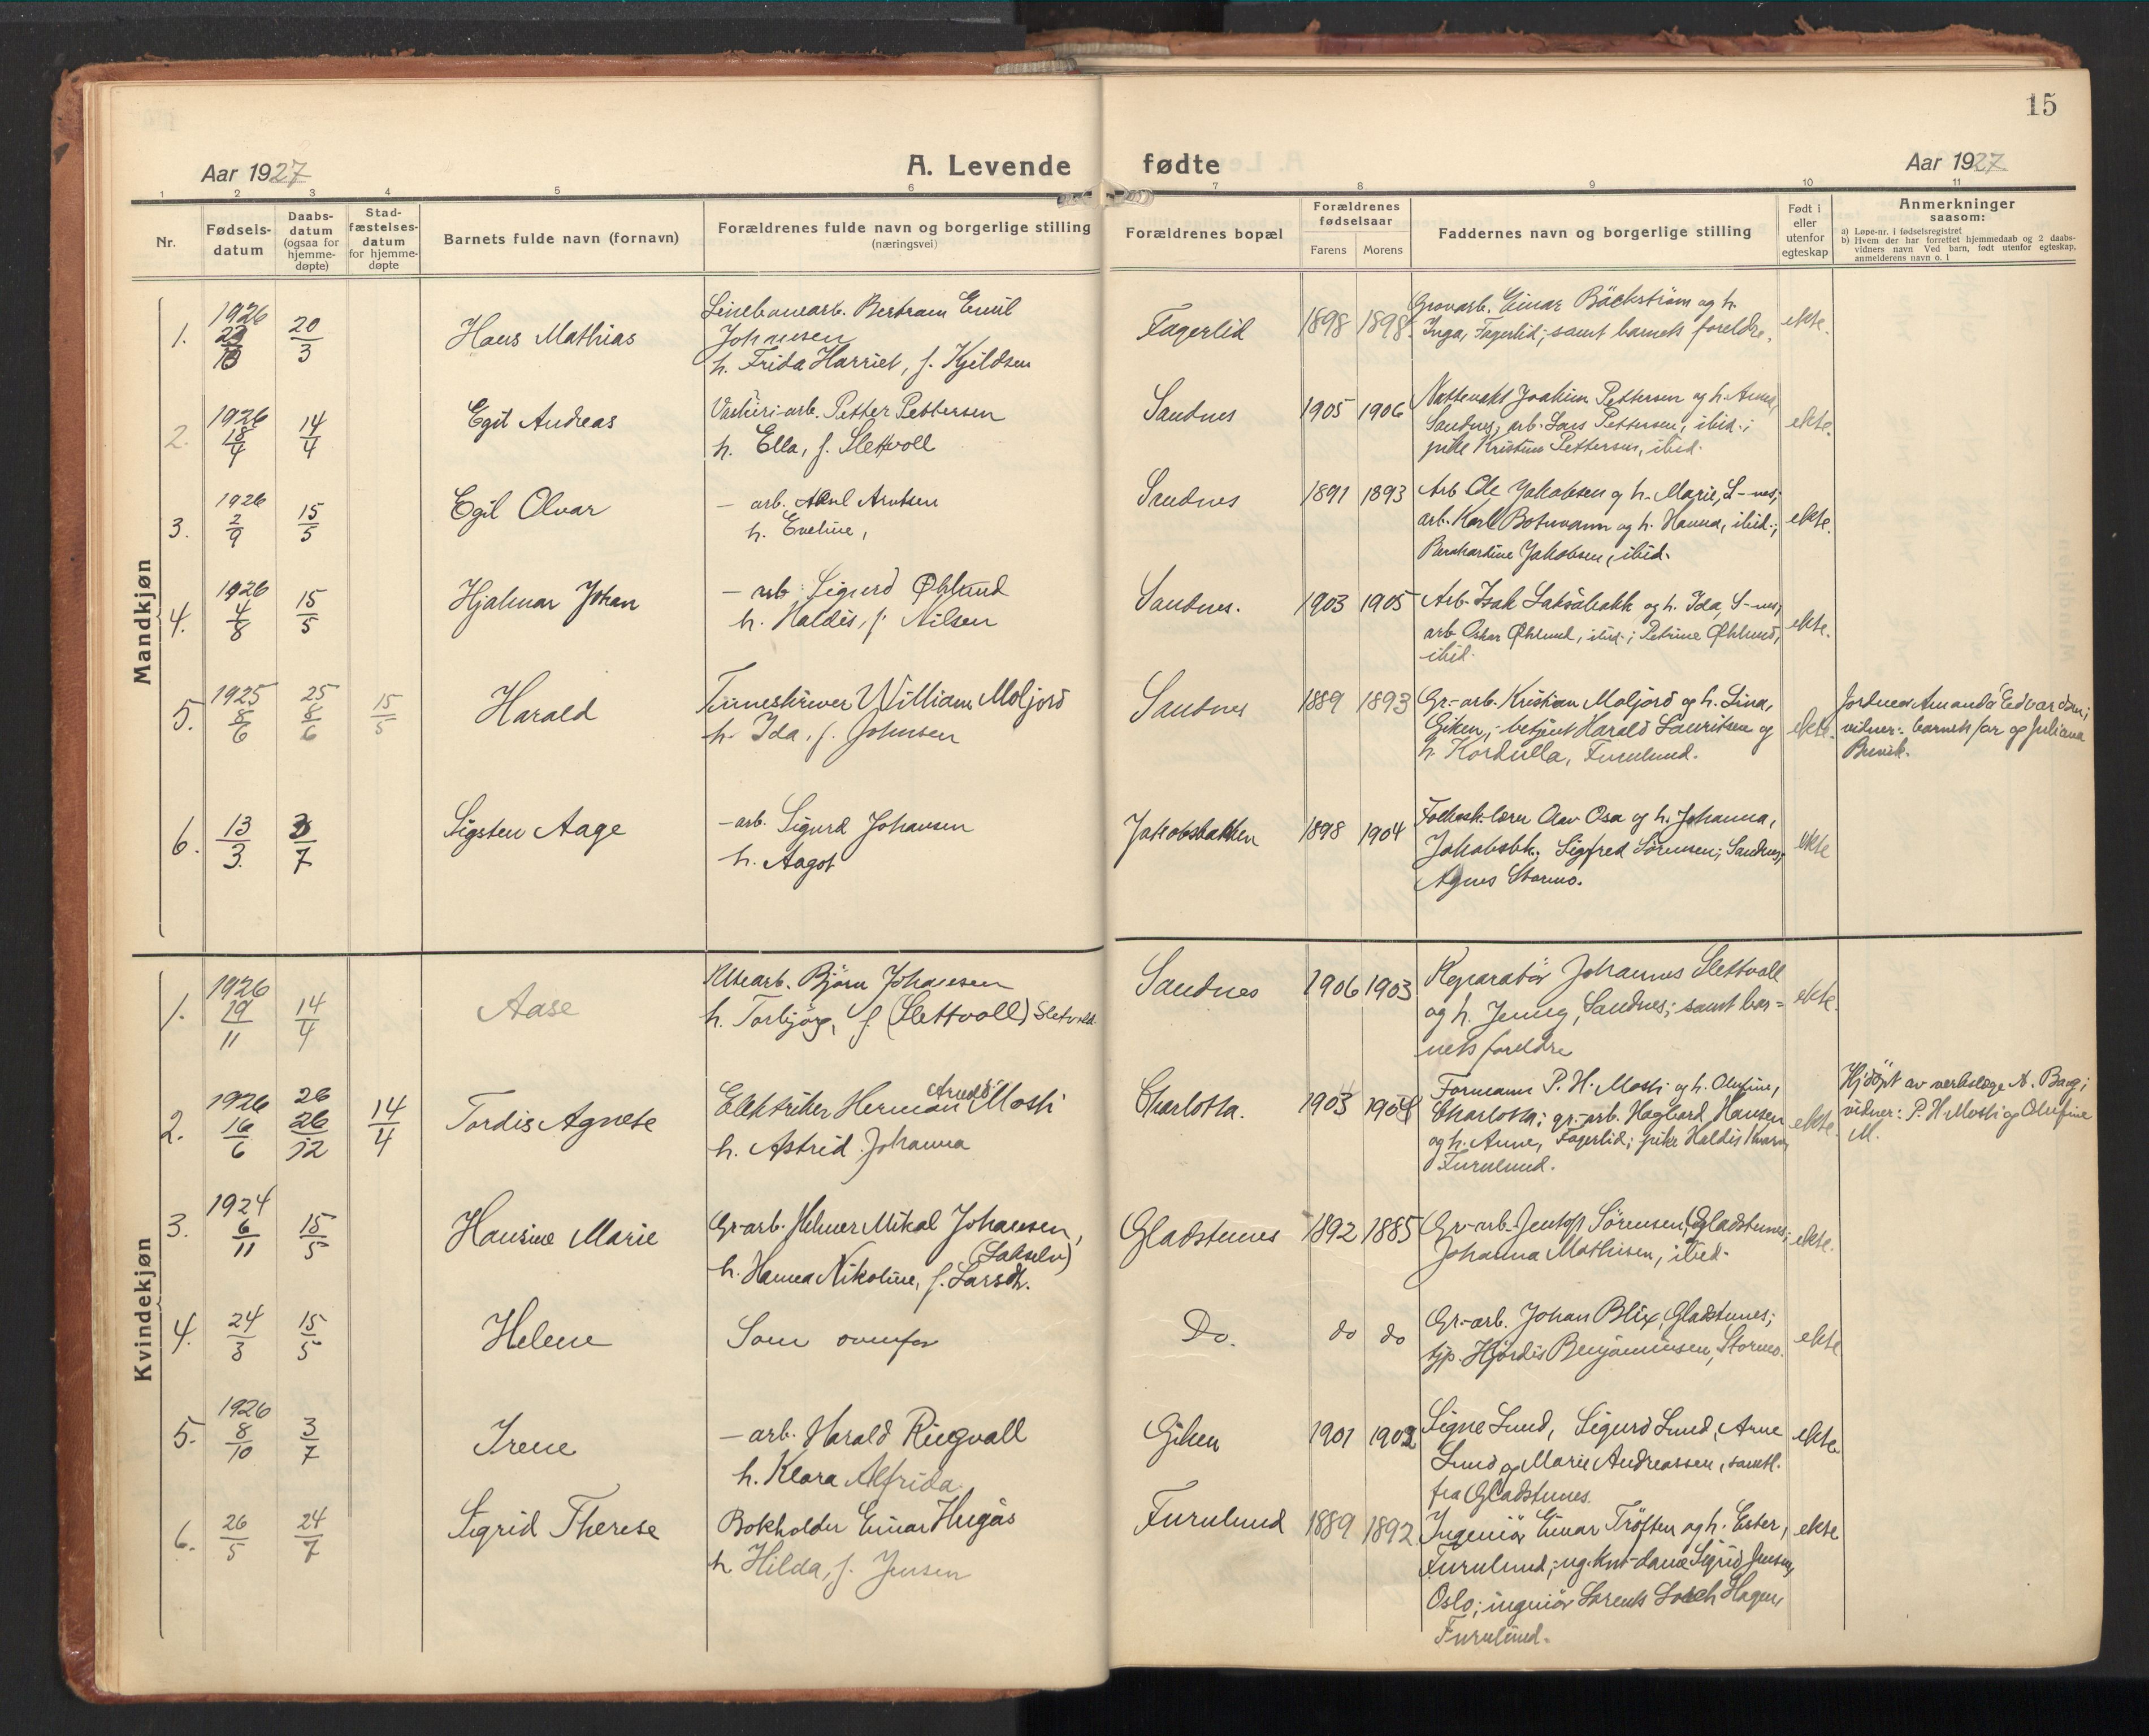 15
Aar 1927
A. Levende fødte
Aar 1927
1 2 3 4 5 6 7 8 9 10 11
Nr.
Fødsels-
datum
Daabs-
datum
(ogsaa for
hjemme-
døpte)
Stad-
fæstelses-
datum
for hjemme-
døpte
Barnets fulde navn (fornavn)
Forældrenes fulde navn og borgerlige stilling
(næringsvei)
Forældrenes bopæl
Forældrenes
fødselsaar
Farens Morens
Faddernes navn og borgerlige stilling
Født i
eller
utenfor
egteskap
Anmerkninger
saasom:
a) Løpe-nr. i fødselsregistret
b) Hvem der har forrettet hjemmedaab og 2 daabs-
vidners navn Ved barn, født utenfor egteskap,
anmelderens navn o. l
Mandkjøn
1. 1926 20/3
Hans Mathias
Linebanearb. Bertram Emil
Johansen
h. Frida Harriet, f. Kjeldsen
Fagerlid 1898 1898
Grovarb. Einar Bäckström og h.
Inga, Fagerlid; samt barnets foreldre.
ekte.
2. 1926 18/4 14/4
Egil Andreas
Vaskeri-arb. Petter Pettersen
h. Ella, f. Slettvoll
Sandnes 1905 1906
Nattevakt Joakim Pettersen og h. Anna,
Sandnes; arb. Lars Pettersen, ibid.;
pike Kristine Pettersen, ibid.
ekte.
3. 1926 2/9 15/5
Egil Olvar
— arb. Arntsen
h. Eveline,
Sandnes 1891 1893
Arb. Ole Jakobsen og h. Marie, S-nes;
arb. Karl Botnvann og h. Hanna, ibid.;
Bernhardine Jakobsen, ibid.
ekte.
4. 1926 4/8 15/5
Hjalmar Johan
— arb. Sigurd Øhlund
h. Haldis, f. Nilsen
Sandnes. 1903 1905
Arb. Isak Laksåbakk og h. Ida, S-nes;
arb. Oskar Øhlund, ibid.; Petrine Øhlund,
ibid.
ekte.
5. 1925 8/6 25 8/6 15/5
Harald
Timeskriver William Moljord
h. Ida, f. Johnsen
Sandnes 1889 1893
Gr.-arb. Kristian Moljord og h. Lina,
Giken; betjent Harald Lauritsen og
h. Kordulla, Furulund.
ekte.
Jordmor Amanda Edvardsen;
vidner: barnets far og Juliana
6. 13/3. 3/7
Sigsten Aage
— arb. Sigurd Johansen
h. Aagot
Jakobsbakken 1898 1904
Folkesk.lærer Olav Osa og h. Johanna,
Jakobsbk.; Sigfred Sørensen; Sandnes;
Agnes Stormo.
ekte
Kvindekjøn
1. 1926 29/11 14/4
Aase
arb. Bjørn Johansen
h. Torbjørg, f. (Slettvoll) Sletvold.
Sandnes 1906 1903
Reparatør Johannes Slettvoll
og h. Jenny, Sandnes; samt bar=
nets foreldre
ekte.
2. 1926 16/6 26 26/12 14/4
Tordis Agnete
Elektriker Herman Arnold Mosti
h. Astrid Johanna
Charlotta. 1903 1904
Formann P. H. Mosti og h. Olufine,
Charlotta; gr.-arb. Hagbard Hansen
og h. Anne, Fagerlid; pike Haldis Kvarm,
Furulund.
ekte.
Hj.döpt av verkslæge A. Barg;
vidner: P. H. Mosti og Olufine
M.
3. 1924 6/11 15/5
Hansine Marie
Gr-arb. Helmer Mikal Johansen,
(Lakselv)
h. Hanna Nikoline, f. Larsdt.
Gladstunes 1892 1885
Gr-arb. Jentoft Sørensen, Gladstunes;
Johanna Mathisen, ibid.
ekte.
4. 24/3 15/5
Helene
Som ovenfor
Do. do do
Gr.-arb. Johan Blix, Gladstunes;
tjp. Hjördis Benjaminsen, Stormo.
ekte
5. 1926 8/10 3/7
Irene
— arb. Harald Ringvall
h. Klara Alfrida.
Giken 1901 1902
Signe Lund, Sigurd Lund, Arne
Lund og Marie Andreassen, samtl.
fra Gladstunes.
ekte
6. 26/5 24/7
Sigrid Therese
Bokholder Einar Hugås
h Hilda, f. Jensen
Furulund 1889 1892
Ingeniør Einar Tröften og h. Ester,
Furulund; ug. kont-dame Sigrid Jensen,
Oslo; ingeniör Lorents Lorch Hagen,
Furulund.
ekte